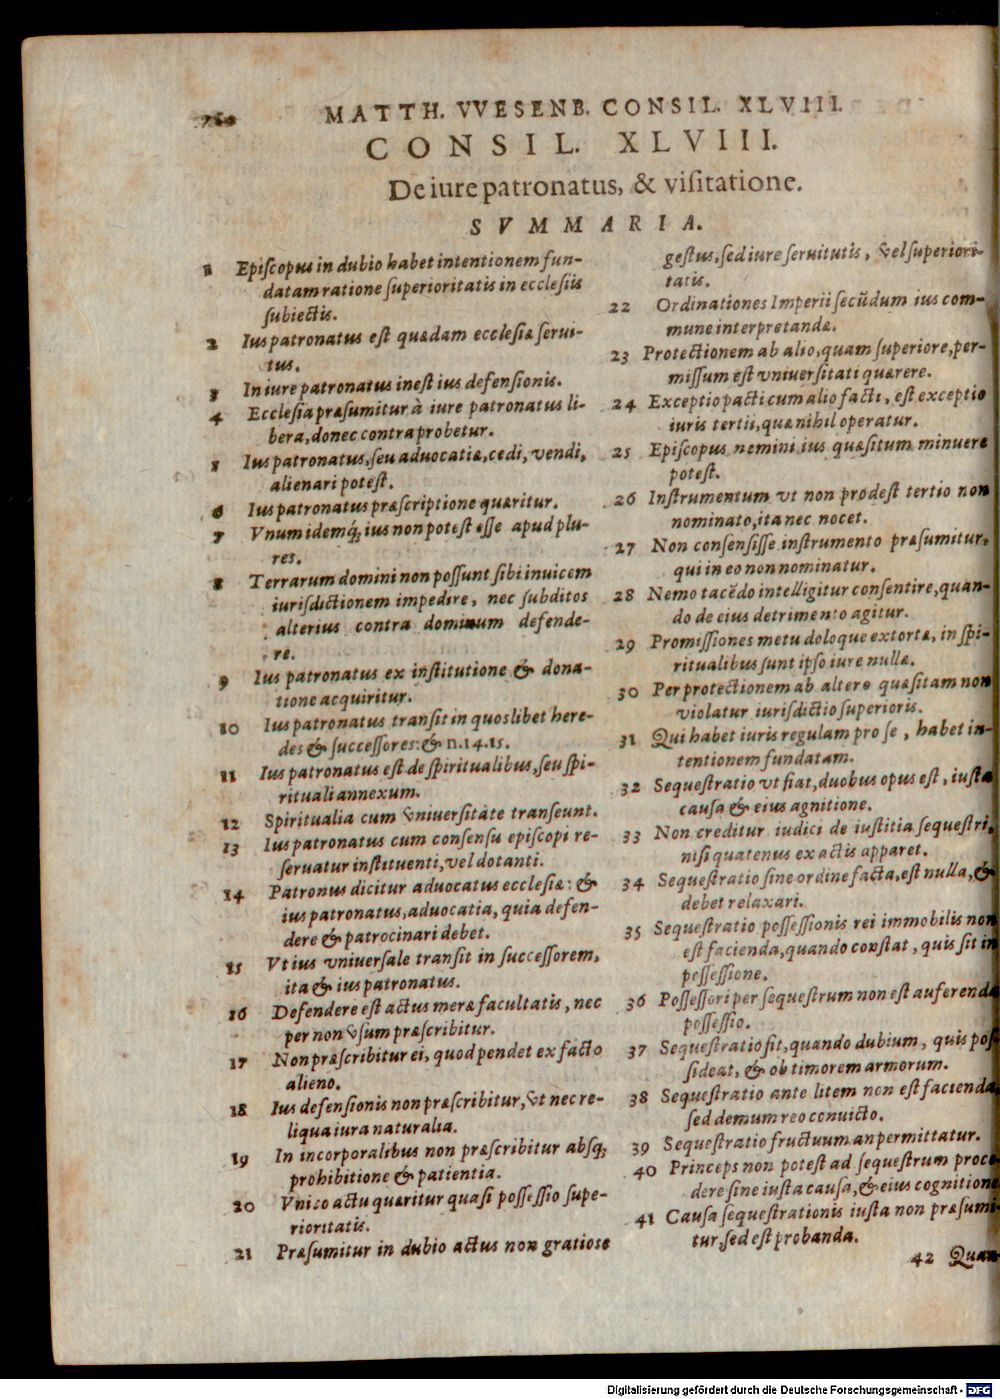 760
MATTH. VVESENB. CONSIL. XLVIII.
CONSIL. XLVIII.
De iure patronatus, & viſitatione.
SVMMARIA.
1 Epiſcopus in dubio habet intentionem fun-
datam ratione ſuperioritatis in eccleſiis
ſubiectis.
2 Ius patronatus eſt quædam eccleſiæ ſerui-
tus.
3 In iure patronatus ineſt ius defenſionis.
4 Eccleſia præſumitur à iure patronatus li-
bera, donec contra probetur.
5 Ius patronatus, ſeu aduocatiæ, cedi, vendi,
alienari poteſt.
6 Ius patronatus præſcriptione quæritur.
7 Vnum idemq́; ius non poteſt eſſe apud plu-
res.
8 Terrarum domini non poſſunt ſibi inuicem
iuriſdictionem impedire, nec ſubditos
alterius contra dominum defende-
re.
9 Ius patronatus ex inſtitutione & dona-
tione acquiritur.
10 Ius patronatus tranſit in quoslibet here-
des & ſucceſſores: & n.14.15.
11 Ius patronatus eſt de ſpiritualibus, ſeu ſpi-
rituali annexum.
12 Spiritualia cum vniuerſitate tranſeunt.
13 Ius patronatus cum conſenſu epiſcopi re-
ſeruatur inſtituenti, vel dotanti.
14 Patronus dicitur aduocatus eccleſiæ: &
ius patronatus, aduocatia, quia defen-
dere & patrocinari debet.
15 Vt ius vniuerſale tranſit in ſucceſſorem,
ita & ius patronatus.
16 Defendere eſt actus meræ facultatis, nec
per non vſum præſcribitur.
17 Non præſcribitur ei, quod pendet ex facto
alieno.
18 Ius defenſionis non præſcribitur, vt nec re-
liqua iura naturalia.
19 In incorporalibus non præſcribitur abſq;
prohibitione & patientia.
20 Vnico actu quæritur quaſi poſſeſſio ſupe-
rioritatis.
21 Præſumitur in dubio actus non gratioſe
geſtus, ſed iure ſeruitutis, vel ſuperiori-
tatis.
22 Ordinationes Imperii ſecūdum ius com-
mune interpretandæ.
23 Protectionem ab alio, quam ſuperiore, per-
miſſum eſt vniuerſitati quærere.
24 Exceptio pacti cum alio facti, eſt exceptio
iuris tertii, quæ nihil operatur.
25 Epiſcopus nemini ius quæſitum minuere
poteſt.
26 Inſtrumentum vt non prodeſt tertio non
nominato, ita nec nocet.
27 Non conſenſiſſe inſtrumento præſumitur,
qui in eo non nominatur.
28 Nemo tacēdo intelligitur conſentire, quan-
do de eius detrimento agitur.
29 Promiſſiones metu doloque extortæ, in ſpi-
ritualibus ſunt ipſo iure nullæ.
30 Per protectionem ab altero quæſitam non
violatur iuriſdictio ſuperioris.
31 Qui habet iuris regulam pro ſe, habet in-
tentionem fundatam.
32 Sequeſtratio vt fiat, duobus opus eſt, iuſta
cauſa & eius agnitione.
33 Non creditur iudici de iuſtitia ſequeſtri,
niſi quatenus ex actis apparet.
34 Sequeſtratio ſine ordine facta, eſt nulla, &
debet relaxari.
35 Sequeſtratio poſſeſſionis rei immobilis non
eſt facienda, quando conſtat, quis ſit in
poſſeſſione.
36 Poſſeſſori per ſequeſtrum non eſt auferenda
poſſeſſio.
37 Sequeſtratio fit, quando dubium, quis poſ-
ſideat, & ob timorem armorum.
38 Sequeſtratio ante litem non eſt facienda,
ſed demum reo conuicto.
39 Sequeſtratio fructuum an permittatur.
40 Princeps non poteſt ad ſequeſtrum proce-
dere ſine iuſta cauſa, & eius cognitione
41 Cauſa ſequeſtrationis iuſta non præſumi-
tur, ſed eſt probanda.
42 Quan-
Digitalisierung gefördert durch die Deutsche Forschungsgemeinschaft - DFG